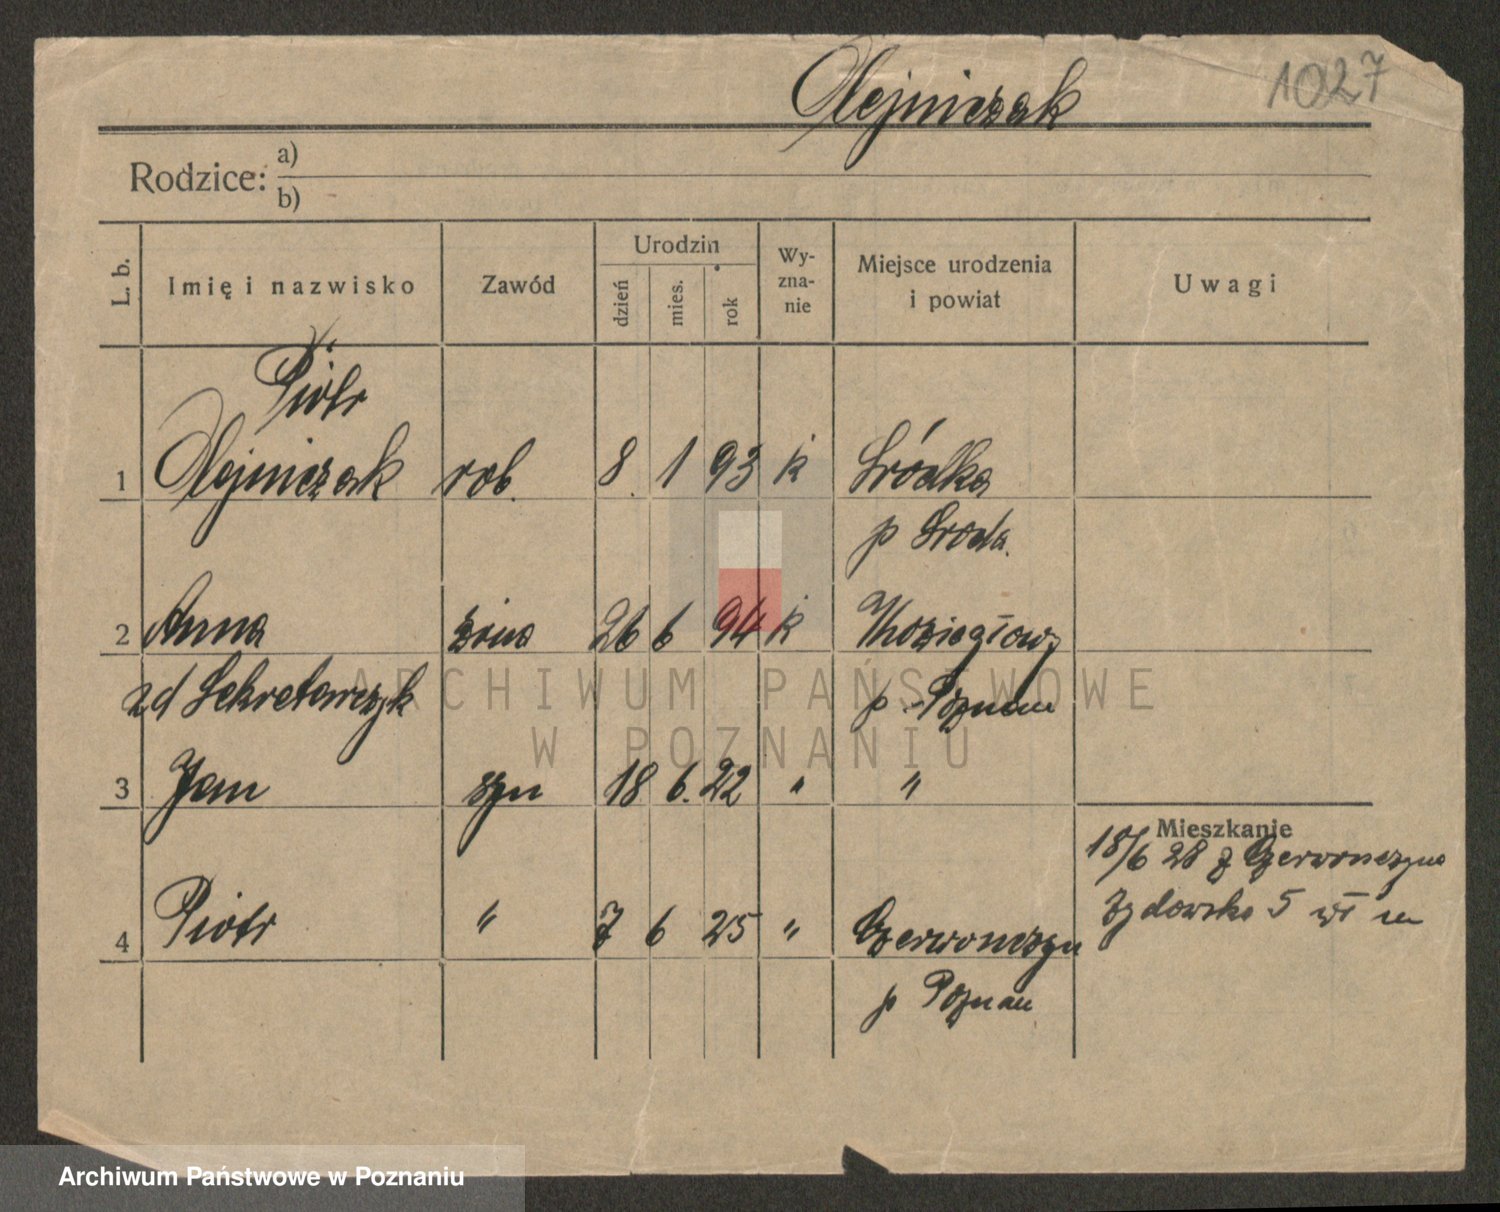 Olejniczak 1027
Rodzice: a)
b)
L. b. Imię i nazwisko Zawód Urodzin dzień mies. rok Wy-zna-nie Miejsce urodzenia i powiat Uwagi
Piotr
1 Olejniczak rob. 8. 1 93 k Śródka
p Środa.
2 Anna żona 26 6 94 k Koziegłowy
zd Sekretarczyk p. Poznan
3 Jan syn 18 6. 22 " "
Mieszkanie
18/6 28 z Czerwonczyna
Żydowska 5 wł m
4 Piotr " 7 6 25 " Czerwonczyn
p Poznan
ARCHIWUM PAŃSTWOWE
W POZNANIU
Archiwum Państwowe w Poznaniu